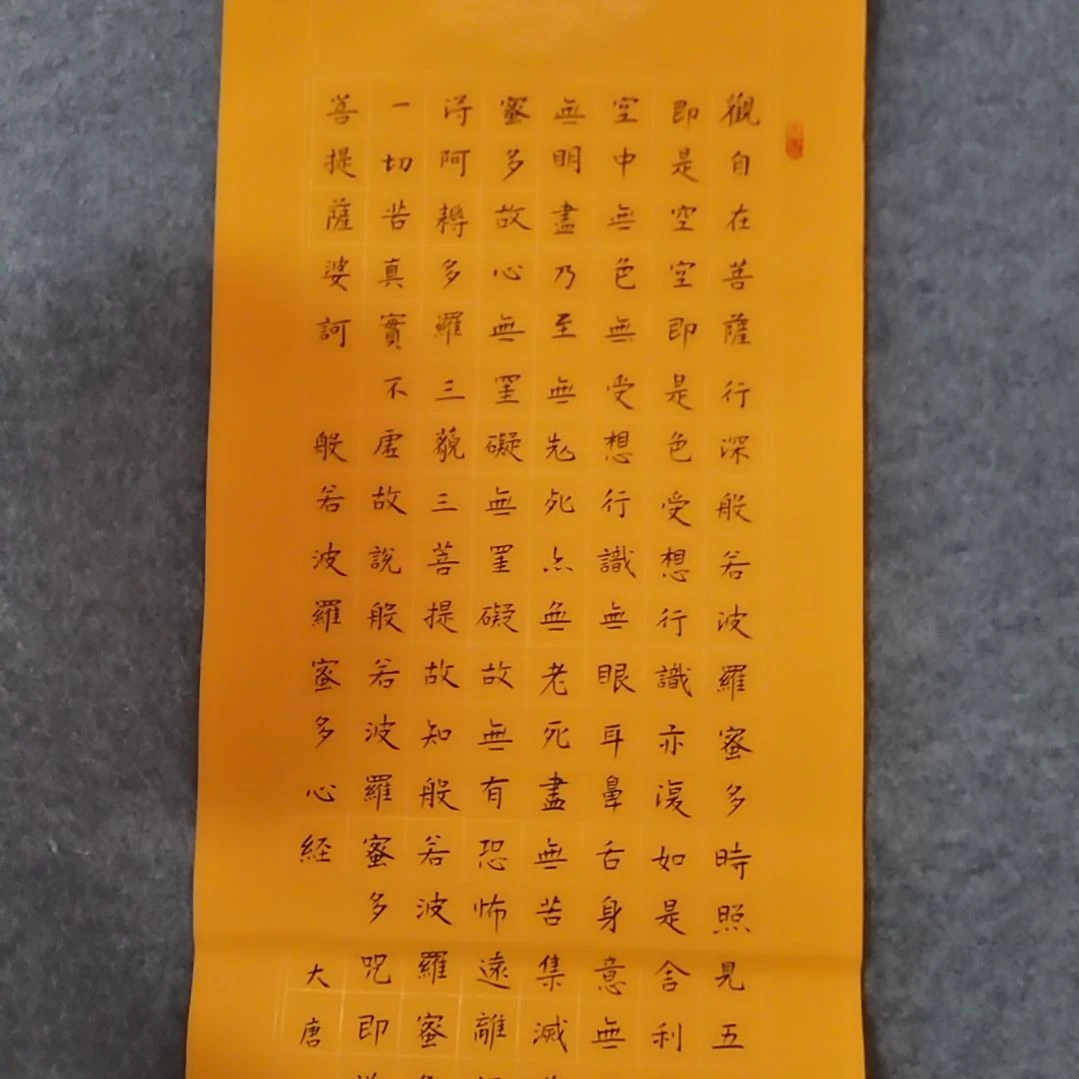 觀自在菩薩行深般若波羅蜜多時照見五
即是空空即是色受想行識亦復如是舍利
空中無色無受想行識無眼耳鼻舌身意無
無明盡乃至無老死亦無老死盡無苦集滅
蜜多故心無罣礙無罣礙故無有恐怖遠離
得阿耨多羅三藐三菩提故知般若波羅蜜
一切苦真實不虛故說般若波羅蜜多咒即
菩提薩婆訶 般若波羅蜜多心経 大唐